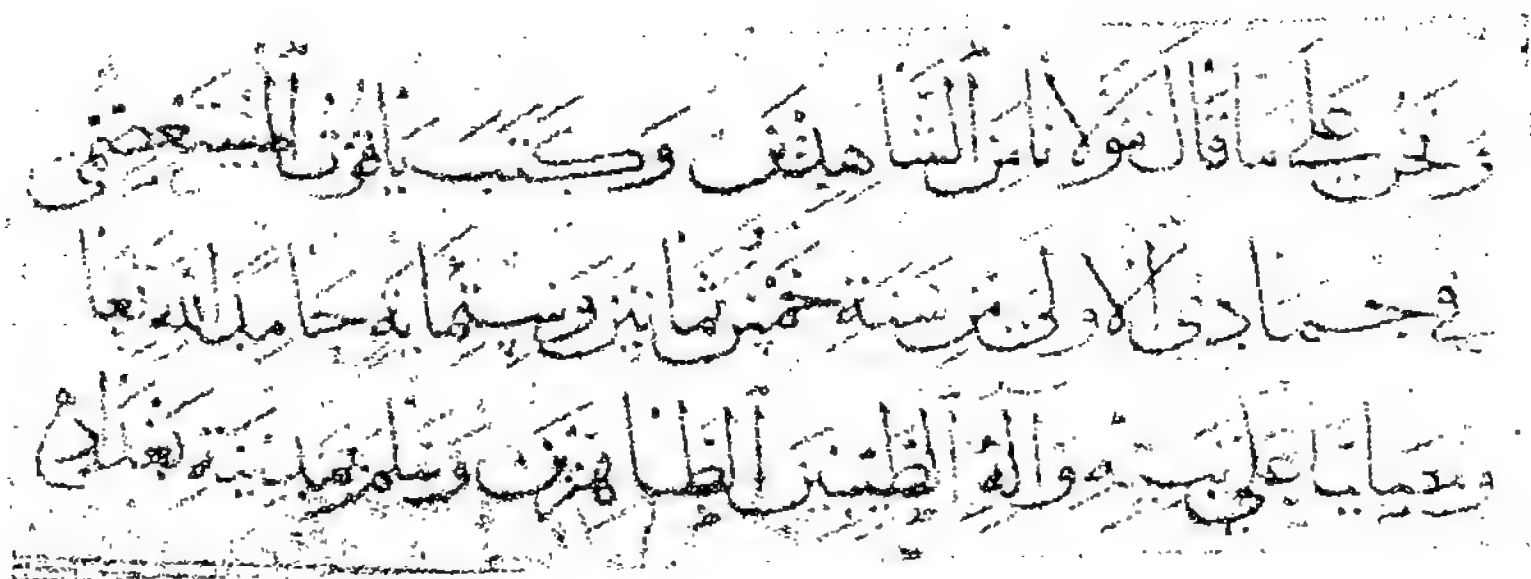 ونحن على ما قال مولانا من الشاهدين وكتب ياقوت المستعصمي
في جمادى الاولى من سنة خمس ثمانين وستمائة حامدا لله تعا
على نبيه وآله الطيبين الطاهرين وسلم بمدينة بغداد